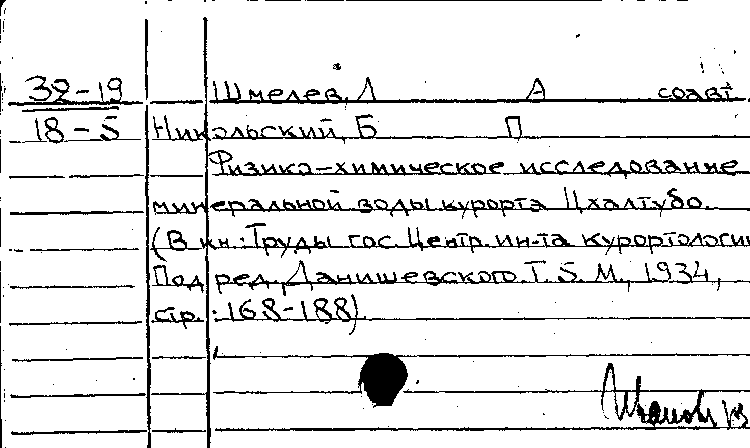 32-19 Шмелев, Л А соавт.
18-5 Никольский, Б П
Физико-химическое исследование
минеральной воды курорта Цхалтубо.
(В кн.: Труды гос. Центр. ин-та курортологии
Под ред. Данишевского. Т. 5. М., 1934,
стр.: 168-188).